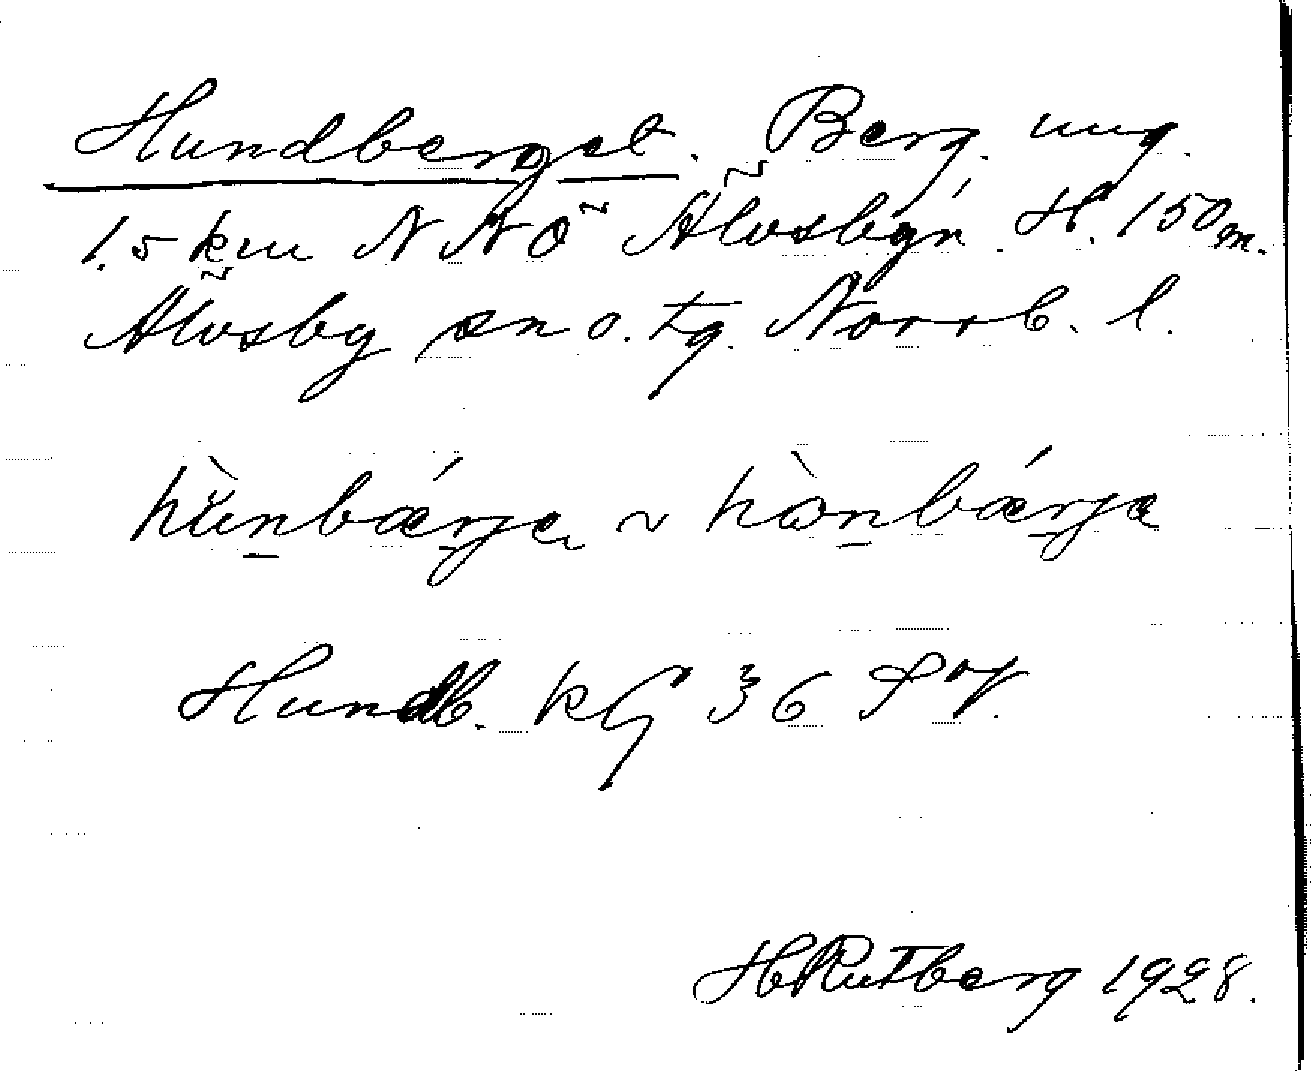 Hundberget. Berg. ung.
1.5 km NNÖ Älvsbyn. H. 150 m.
Älvsby sn o. tg. Norrb. l.
hùnbǽrje ~ hònbǽrje
Hundb. kbl 36 SV.
H Rutberg 1928.